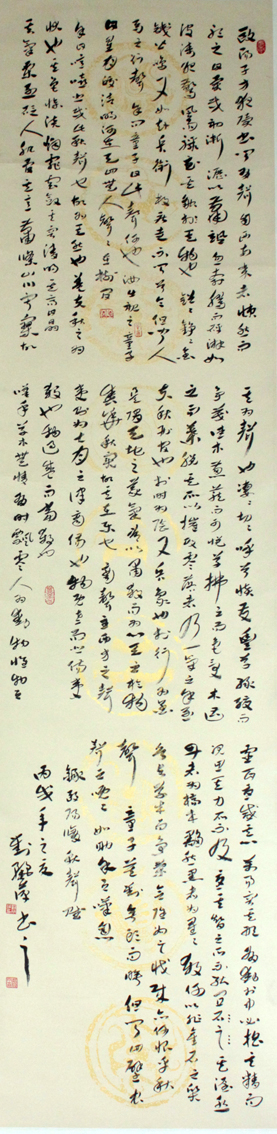 歐陽子方夜讀書聞有聲自西南來者悚然而
聽之曰異哉初淅瀝以蕭颯忽奔騰而砰湃如
波濤夜驚風雨驟至其觸於物也鏦鏦錚錚金
鐵皆鳴又如赴敵之兵銜枚疾走不聞號令但聞人
馬之行聲余謂童子此何聲也汝出視之童子
曰星月皎潔明河在天四無人聲聲在樹間
余曰噫嘻悲哉此秋聲也胡為而來哉蓋夫秋之為
狀也其色慘淡煙霏雲斂其容清明天高日晶
其氣栗冽砭人肌骨其意蕭條山川寂寥故
其為聲也淒淒切切呼號憤發豐草綠縟而
爭茂佳木蔥蘢而可悅草拂之而色變木遭
之而葉脫其所以摧敗零落者乃一氣之餘烈
夫秋刑官也於時為陰又兵象也於行為金
是謂天地之義氣常以肅殺而為心天之於物
春生秋實故其在樂也商聲主西方之音
夷則為七月之律商傷也物既老而悲傷夷
戮也物過盛而當殺
嗟乎草木無情有時飄零人為動物惟物之
靈百憂感其心萬事勞其形有動於中必搖其精而
況思其力之所不及憂其智之所不能宜其渥然
丹者為槁木黟然黑者為星星奈何以非金石之質
欲與草木而爭榮念誰為之戕賊亦何恨乎秋
聲 童子莫對垂頭而睡但聞四壁蟲
聲唧唧如助余之嘆息
錄歐陽脩秋聲賦
丙戌年之夏
書